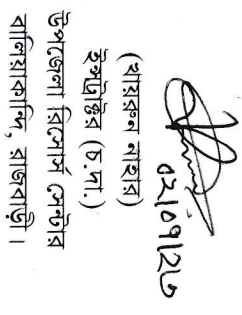 ০২/০৭/২৩
(খায়রুন নাহার)
ইন্সট্রাক্টর (চ.দা.)
উপজেলা রিসোর্স সেন্টার
বালিয়াকান্দি, রাজবাড়ী।